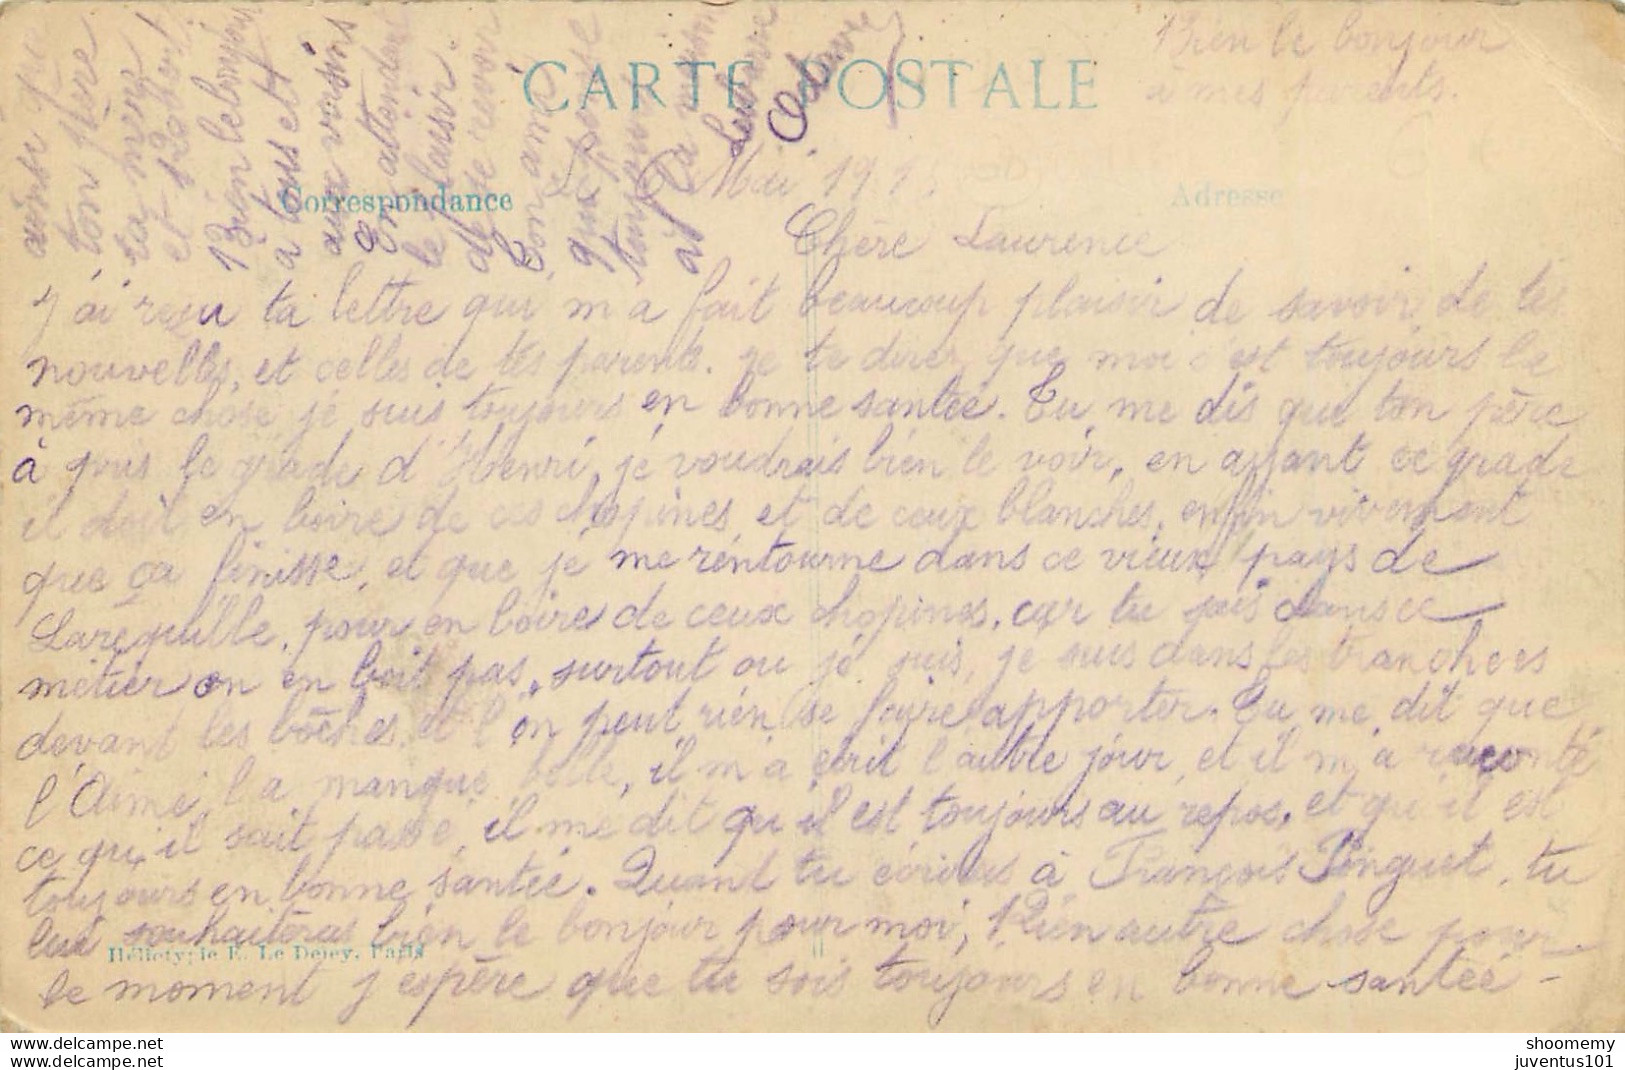 CARTE POSTALE
Correspondance
Adresse
Le Mai 191
Chère Laurence
J'ai reçu ta lettre qui m'a fait beaucoup plaisir de savoir de tes
nouvelles, et celles de tes parents. je te direz que moi c'est toujours la
même chose je suis toujours en bonne santée. Tu me dis que ton père
à pris le grade d'Henri, je voudrais bien le voir, en ayant ce grade
il doit en boire de ces chopines et de ceux blanches, enfin vivement
que ça finisse, et que je me réntourne dans ce vieux pays de
pour en boire de ceux chopines, car tu sais dans ce
métier on en boit pas, surtout ou je suis, je suis dans les tranchees
devant les bôches, et l'on peut rien se faire apporter. Tu me dit que
l'Aimé l'a manque belle, il m'a écrit l'autre jour, et il m'a raconté
ce qu'il sait passé, il me dit qu'il est toujours au repos, et qu'il est
toujours en bonne santée. Quand tu écriras à François Pinguet, tu
lui souhaiteras bien le bonjour pour moi, Rien autre chose pour
le moment j'espère que tu sois toujours en bonne santée -
ainsi que
ton père
ta mère
et Robert
Bien le bonjour
à tous et
aux voisins
En attendant
le plaisir
de se revoir
Ton ami
qui pense
toujours
à
Octave
Bien le bonjour
à mes parents.
Héliotypie E. Le Deley, Paris
juventus101
juventus101
shoomemy
juventus101